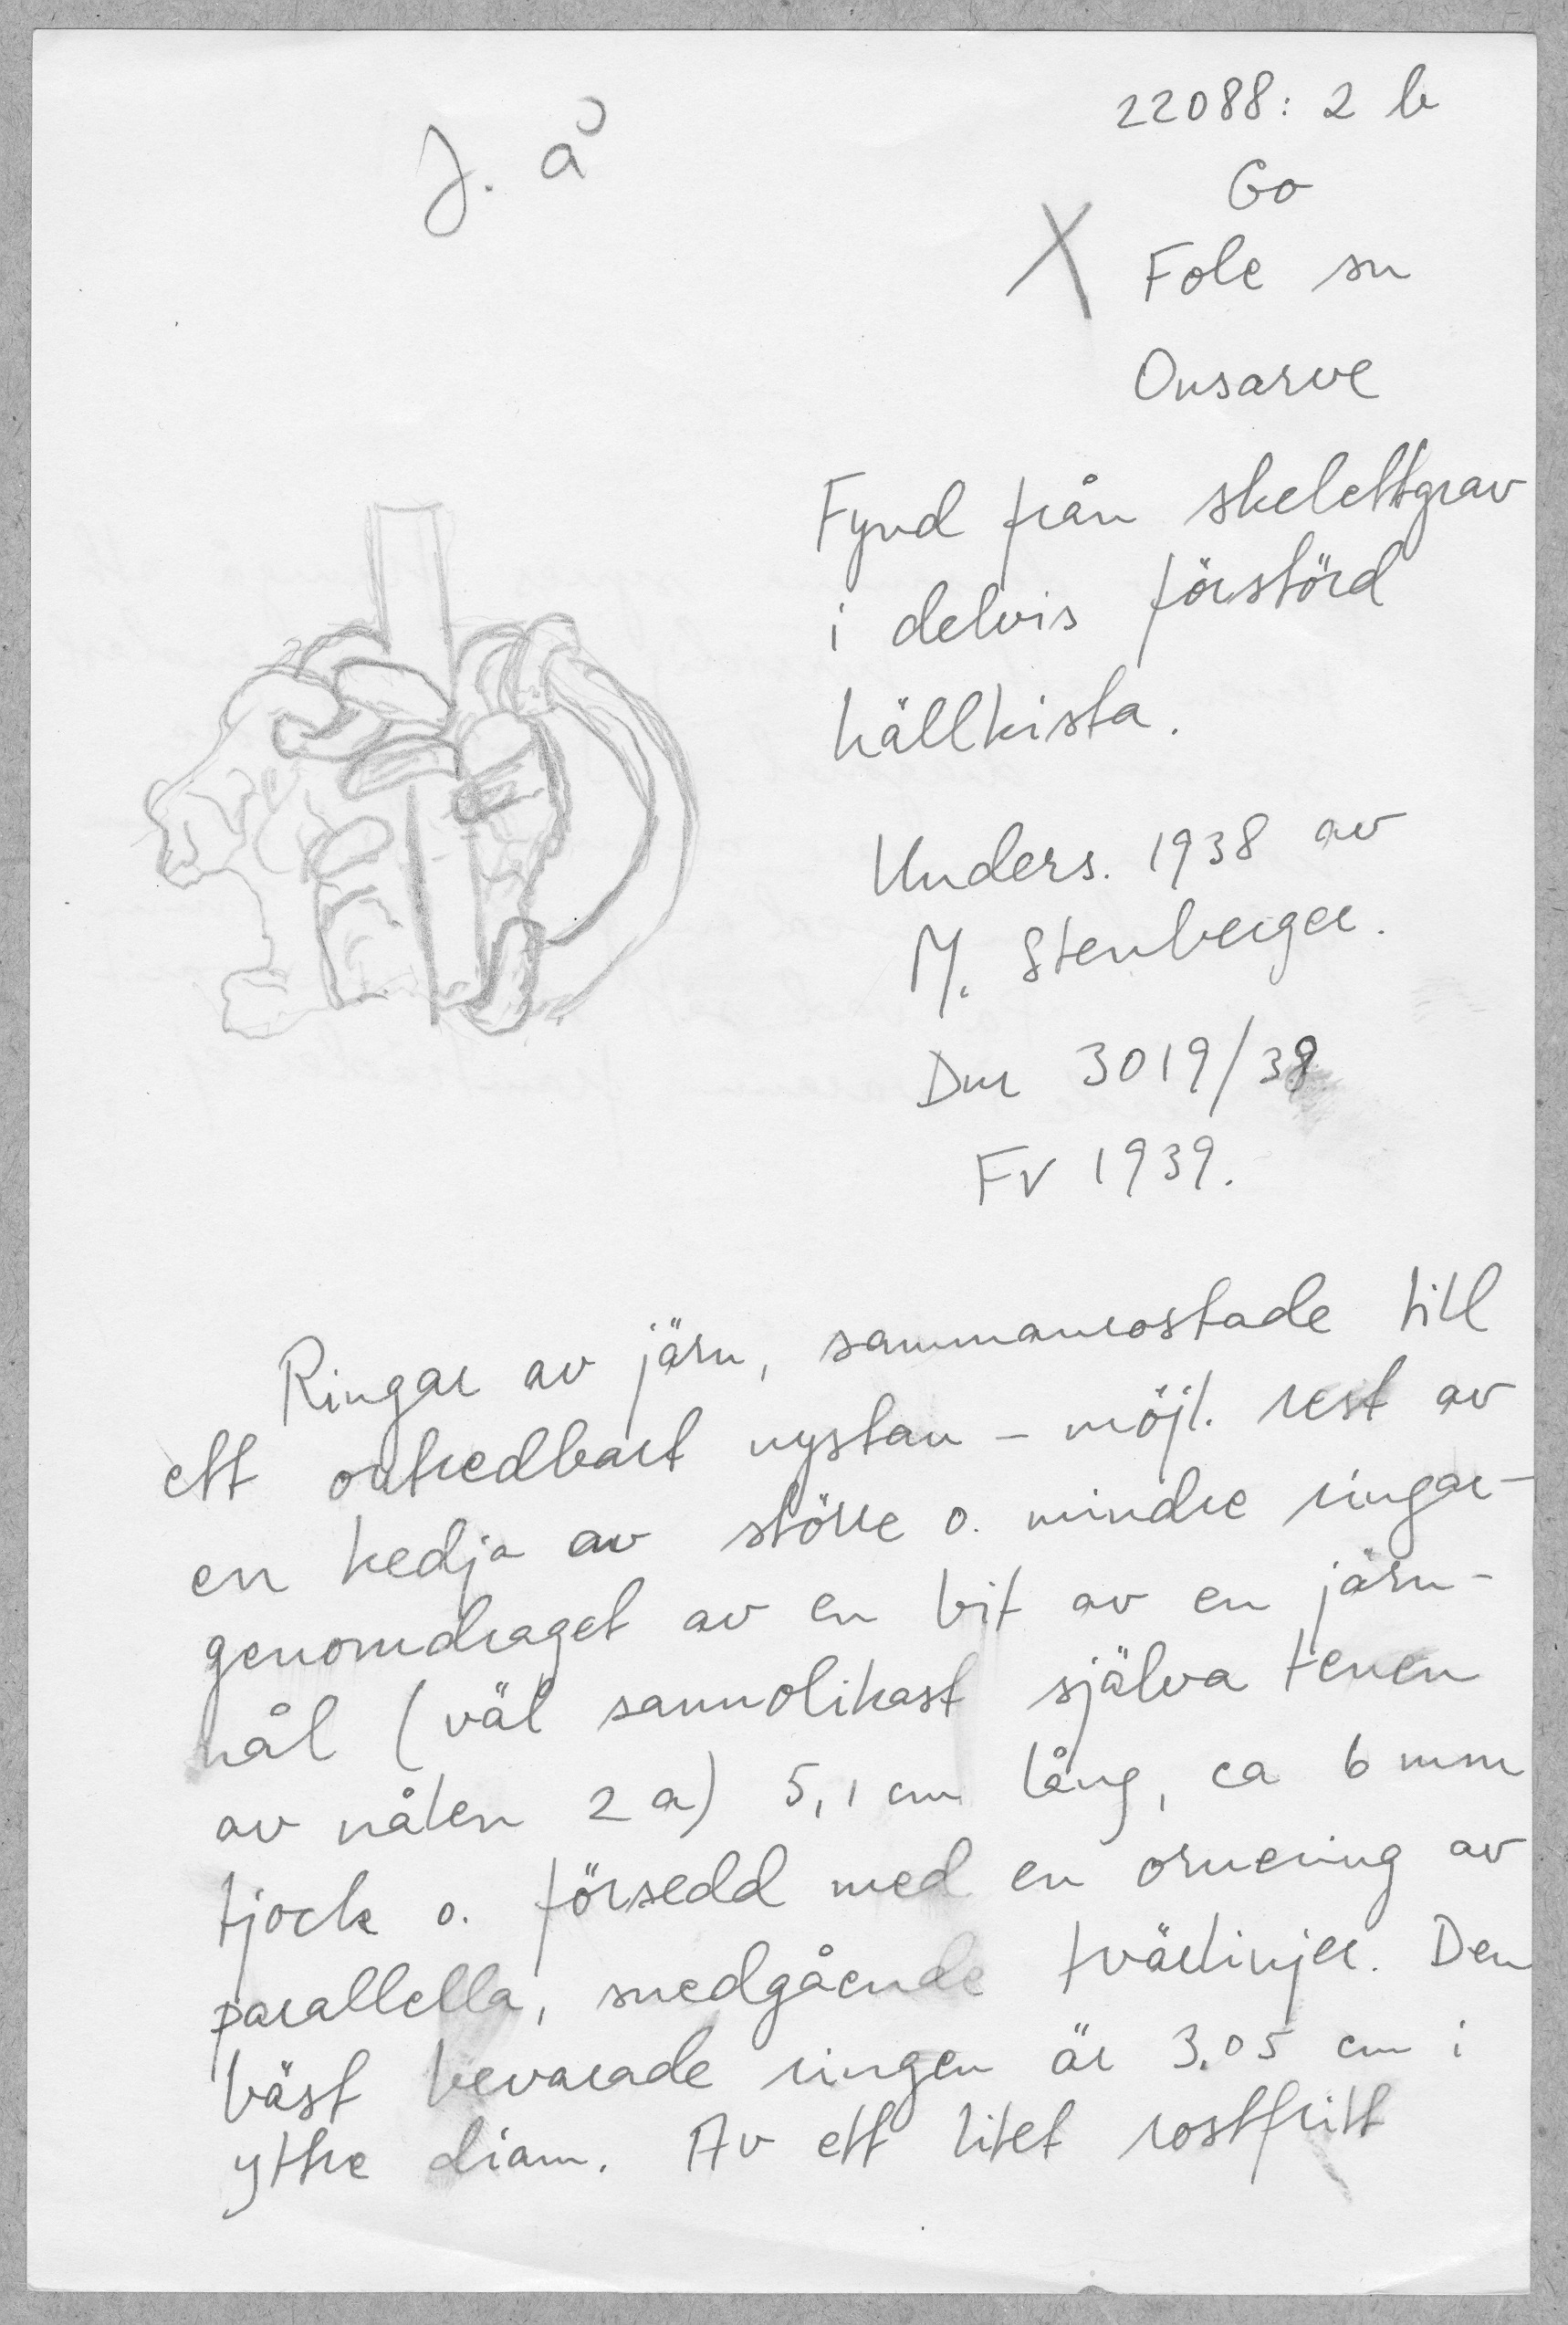 J. å
22088: 2 b
Go
X Fole sn
Onsarve
Fynd från skelettgrav
i delvis förstörd
hällkista.
Unders. 1938 av
M. Stenberger.
Dnr 3019/38
FV 1939.
Ringar av järn, sammanrostade till
ett outredbart nystan – möjl. rest av
en kedja av större o. mindre ringar –
genomdraget av en bit av en järn-
nål (väl sannolikast själva tenen
av nålen 2 a) 5,1 cm lång, ca 6 mm
tjock o. försedd med en ornering av
parallella, snedgående tvärlinjer. Den
bäst bevarade ringen är 3,05 cm i
yttre diam. Av ett litet rostfritt